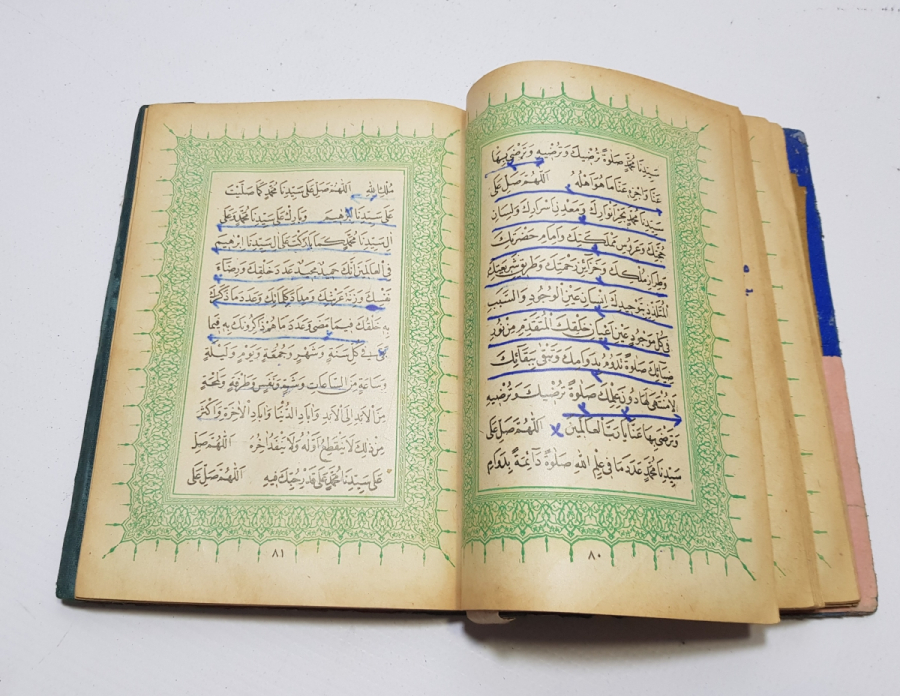 سَيِّدِنَا مُحَمَّدٍ صَلٰوةً تُرْضِيكَ وَتُرْضِيهِ وَتَرْضٰى بِهَا
عَنَّا وَاجْزِهِ عَنَّا مَا هُوَ اَهْلُهُ اَللّٰهُمَّ صَلِّ عَلٰى
سَيِّدِنَا مُحَمَّدٍ بَحْرِ اَنْوَارِكَ وَمَعْدِنِ اَسْرَارِكَ وَلِسَانِ
حُجَّتِكَ وَعَرُوسِ مَمْلَكَتِكَ وَاِمَامِ حَضْرَتِكَ
وَطِرَازِ مُلْكِكَ وَخَزَائِنِ رَحْمَتِكَ وَطَرِيقِ شَرِيعَتِكَ
الْمُتَلَذِّذِ بِتَوْحِيدِكَ اِنْسَانِ عَيْنِ الْوُجُودِ وَالسَّبَبِ
فِى كُلِّ مَوْجُودٍ عَيْنِ اَعْيَانِ خَلْقِكَ الْمُتَقَدِّمِ مِنْ نُورِ
ضِيَائِكَ صَلٰوةً تَدُومُ بِدَوَامِكَ وَتَبْقٰى بِبَقَائِكَ
لَا مُنْتَهٰى لَهَا دُونَ عِلْمِكَ صَلٰوةً تُرْضِيكَ وَتُرْضِيهِ
وَتَرْضٰى بِهَا عَنَّا يَا رَبَّ الْعَالَمِينَ اَللّٰهُمَّ صَلِّ عَلٰى
سَيِّدِنَا مُحَمَّدٍ عَدَدَ مَا فِى عِلْمِ اللّٰهِ صَلٰوةً دَائِمَةً بِدَوَامِ
٨٠
مُلْكِ اللّٰهِ اَللّٰهُمَّ صَلِّ عَلٰى سَيِّدِنَا مُحَمَّدٍ كَمَا صَلَّيْتَ
عَلٰى سَيِّدِنَا اِبْرٰهِيمَ وَبَارِكْ عَلٰى سَيِّدِنَا مُحَمَّدٍ وَعَلٰى
اٰلِ سَيِّدِنَا مُحَمَّدٍ كَمَا بَارَكْتَ عَلٰى اٰلِ سَيِّدِنَا اِبْرٰهِيمَ
فِى الْعَالَمِينَ اِنَّكَ حَمِيدٌ مَجِيدٌ عَدَدَ خَلْقِكَ وَرِضَاءَ
نَفْسِكَ وَزِنَةَ عَرْشِكَ وَمِدَادَ كَلِمَاتِكَ وَعَدَدَ مَا ذَكَرَكَ
بِهِ خَلْقُكَ فِيمَا مَضٰى وَعَدَدَ مَا هُمْ ذَاكِرُونَكَ بِهِ فِيمَا
بَقِىَ فِى كُلِّ سَنَةٍ وَشَهْرٍ وَجُمُعَةٍ وَيَوْمٍ وَلَيْلَةٍ
وَسَاعَةٍ مِنَ السَّاعَاتِ وَشَمٍّ وَنَفَسٍ وَطَرْفَةٍ وَلَمْحَةٍ
مِنَ الْاَبَدِ اِلَى الْاَبَدِ وَاٰبَادِ الدُّنْيَا وَاٰبَادِ الْاٰخِرَةِ وَاَكْثَرَ
مِنْ ذٰلِكَ لَا يَنْقَطِعُ اَوَّلُهُ وَلَا يَنْفَدُ اٰخِرُهُ اَللّٰهُمَّ صَلِّ
عَلٰى سَيِّدِنَا مُحَمَّدٍ عَلٰى قَدْرِ حُبِّكَ فِيهِ اَللّٰهُمَّ صَلِّ عَلٰى
٨١